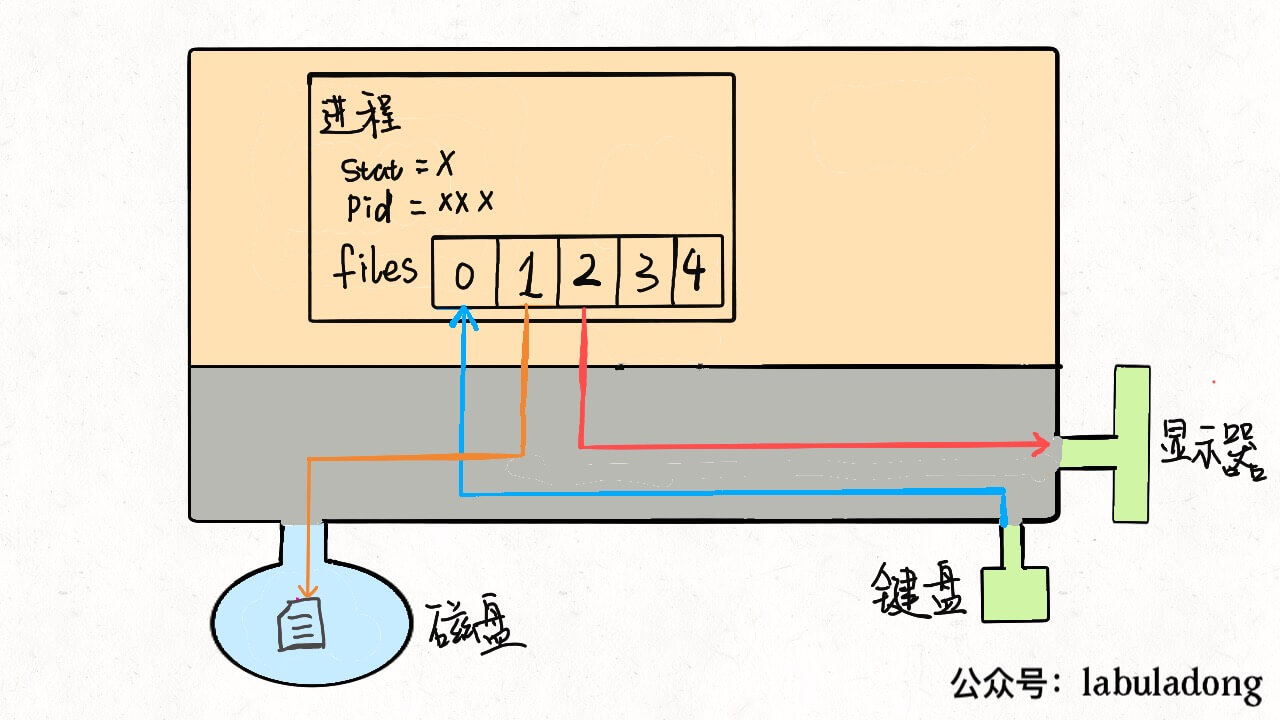 进程
stat = X
Pid = XXX
files 0 1 2 3 4
显示器
键盘
磁盘
公众号：labuladong